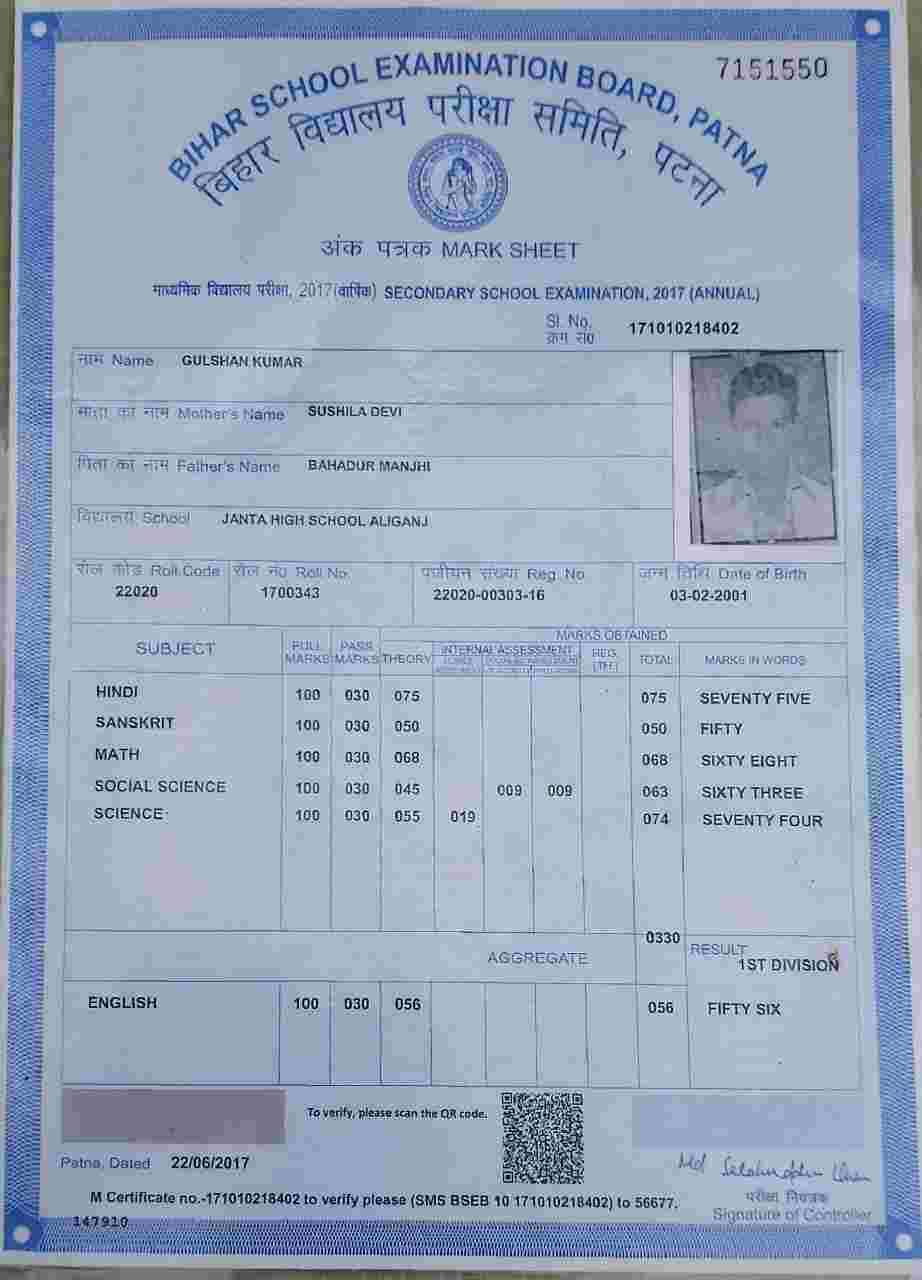 7151550
BIHAR SCHOOL EXAMINATION BOARD, PATNA
बिहार विद्यालय परीक्षा समिति, पटना
अंक पत्रक MARK SHEET
माध्यमिक विद्यालय परीक्षा, 2017(वार्षिक) SECONDARY SCHOOL EXAMINATION, 2017 (ANNUAL)
Sl. No. 171010218402
क्रम सं०
नाम Name GULSHAN KUMAR
माता का नाम Mother's Name SUSHILA DEVI
पिता का नाम Father's Name BAHADUR MANJHI
विद्यालय School JANTA HIGH SCHOOL ALIGANJ
रोल कोड Roll Code रोल नं० Roll No. पंजीयन संख्या Reg. No जन्म तिथि Date of Birth
22020 1700343 22020-00303-16 03-02-2001
MARKS OBTAINED
SUBJECT FULL MARKS PASS MARKS THEORY INTERNAL ASSESSMENT REG. TOTAL MARKS IN WORDS
HINDI 100 030 075 075 SEVENTY FIVE
SANSKRIT 100 030 050 050 FIFTY
MATH 100 030 068 068 SIXTY EIGHT
SOCIAL SCIENCE 100 030 045 009 009 063 SIXTY THREE
SCIENCE 100 030 055 019 074 SEVENTY FOUR
AGGREGATE 0330 RESULT 1ST DIVISION
ENGLISH 100 030 056 056 FIFTY SIX
To verify, please scan the QR code.
Patna, Dated 22/06/2017
M Certificate no.-171010218402 to verify please (SMS BSEB 10 171010218402) to 56677.
147910
परीक्षा नियंत्रक
Signature of Controller